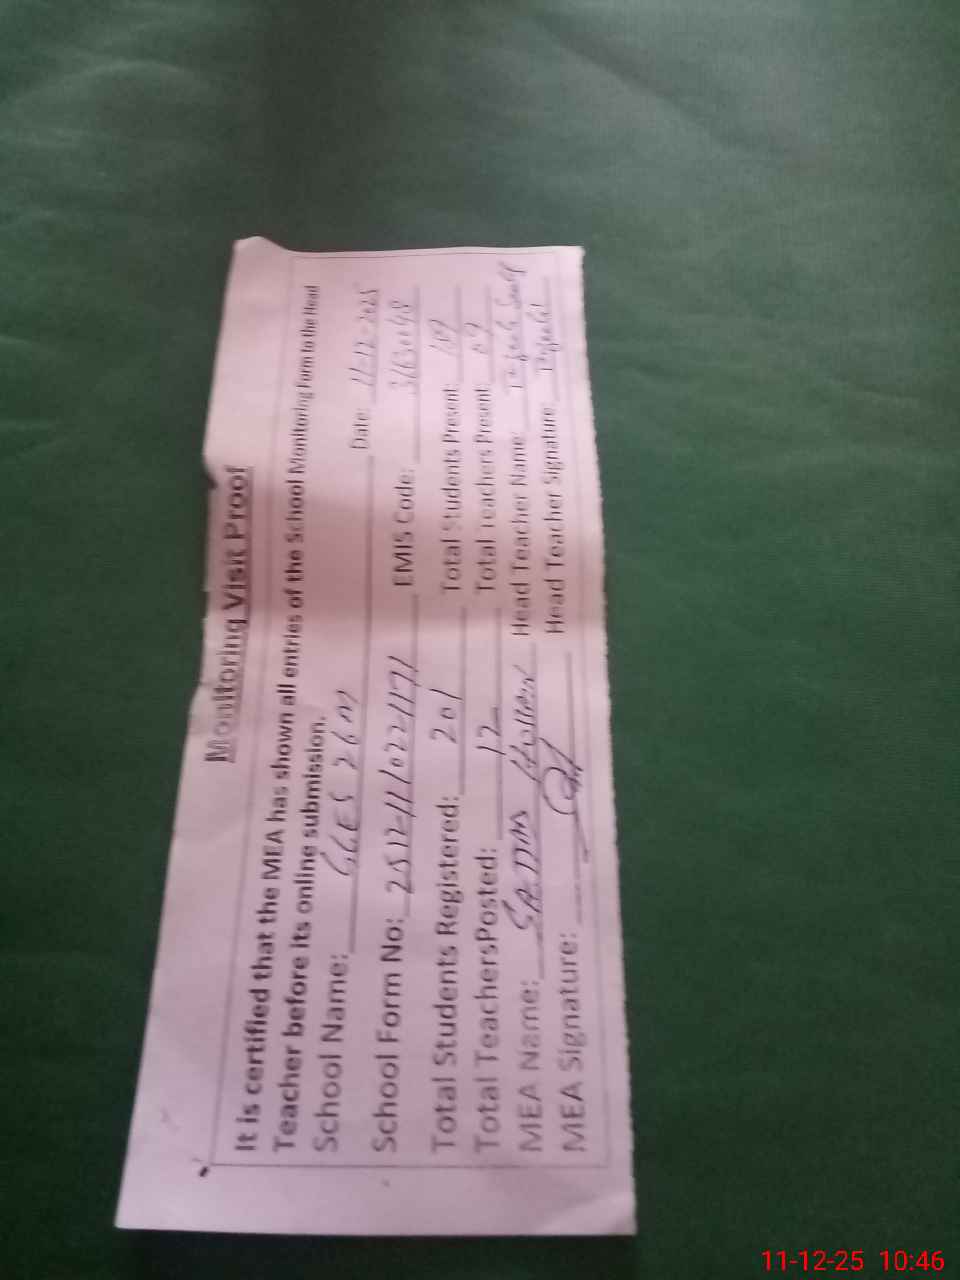 Monitoring Visit Proof
It is certified that the MEA has shown all entries of the School Monitoring Form to the Head
Teacher before its online submission.
School Name: GGES 26 M Date: 11-12-2025
School Form No: EMIS Code:
Total Students Registered: 201 Total Students Present:
Total TeachersPosted: 12 Total Teachers Present: 09
MEA Name: Head Teacher Name:
MEA Signature: Head Teacher Signature:
11-12-25 10:46